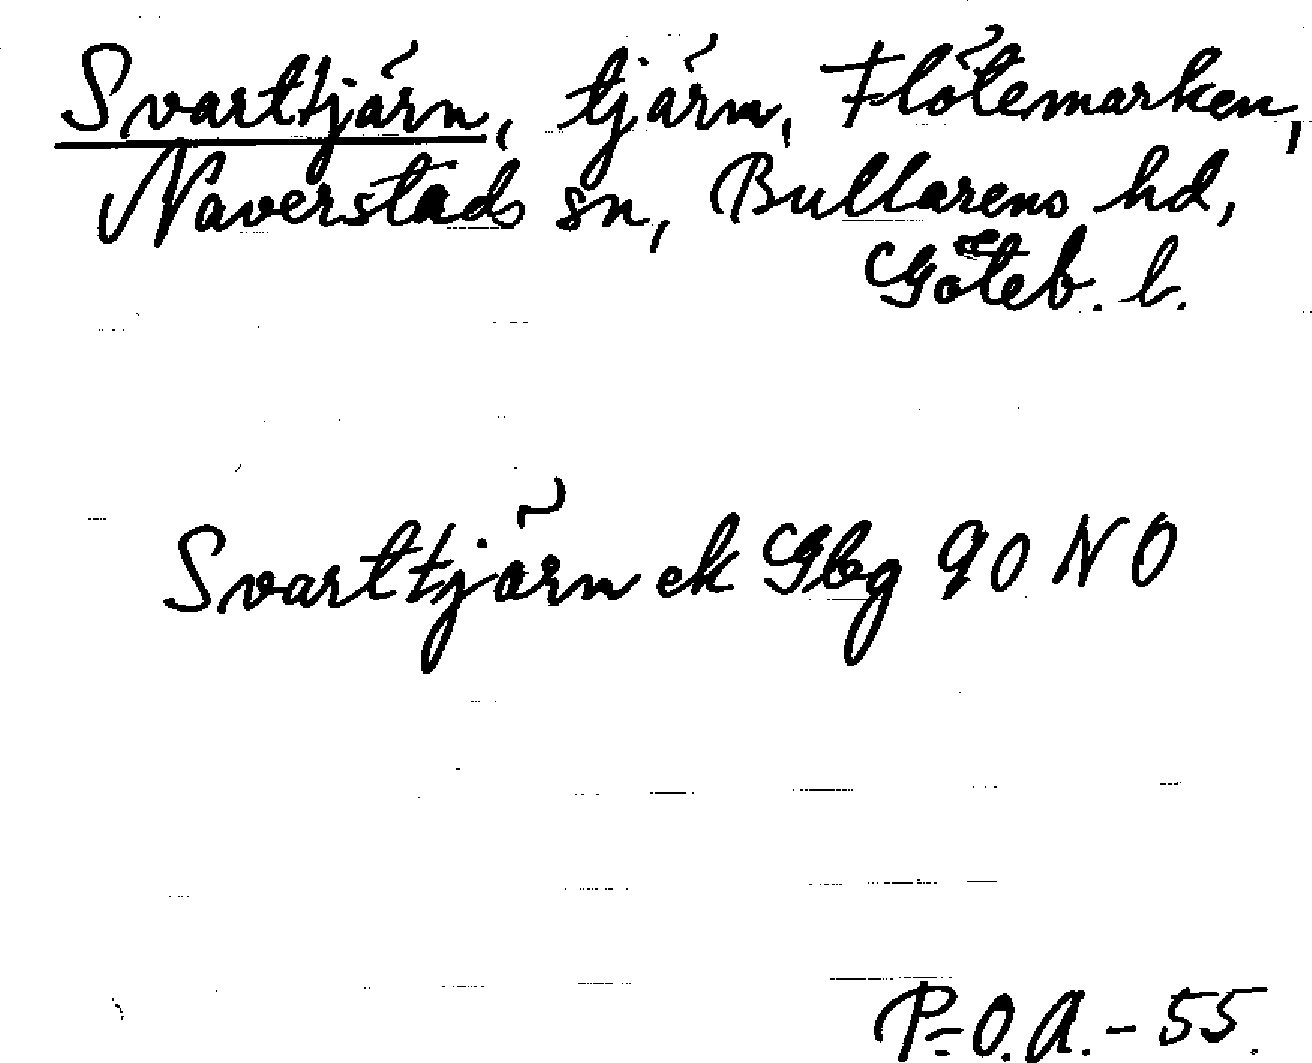 Svarttjärn, tjärn, Flötemarken,
Naverstads sn, Bullarens hd,
Göteb. l.
Svarttjärn ek Gbg 90 NO
P-O.A.-55.